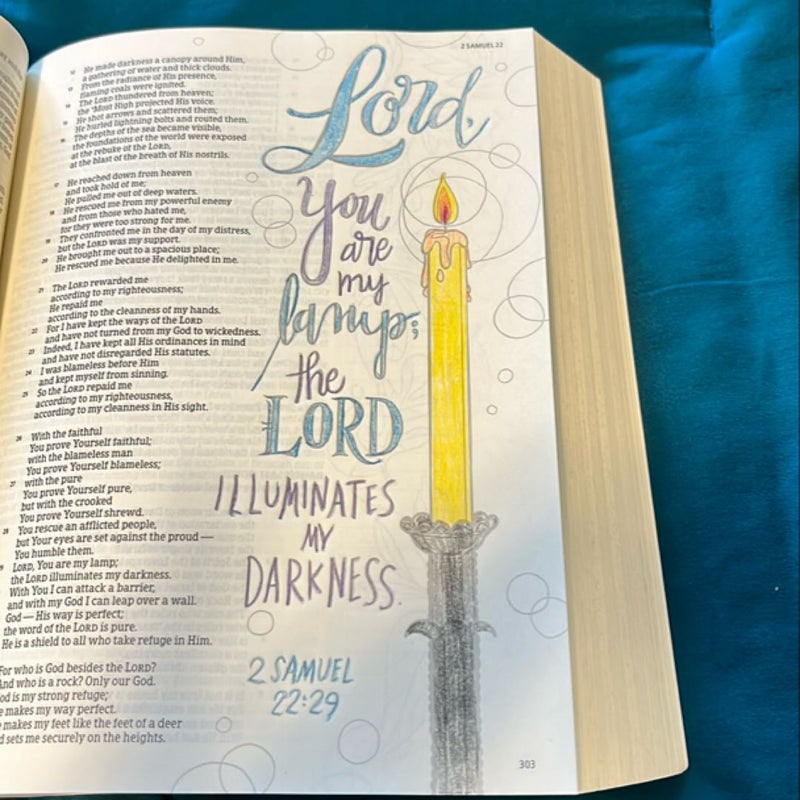 2 SAMUEL 22
12 He made darkness a canopy around Him,
a gathering of water and thick clouds.
13 From the radiance of His presence,
flaming coals were ignited.
14 The LORD thundered from heaven;
the Most High projected His voice.
15 He shot arrows and scattered them;
He hurled lightning bolts and routed them.
16 The depths of the sea became visible,
the foundations of the world were exposed
at the rebuke of the LORD,
at the blast of the breath of His nostrils.
17 He reached down from heaven
and took hold of me;
He pulled me out of deep waters.
18 He rescued me from my powerful enemy
and from those who hated me,
for they were too strong for me.
19 They confronted me in the day of my distress,
but the LORD was my support.
20 He brought me out to a spacious place;
He rescued me because He delighted in me.
21 The LORD rewarded me
according to my righteousness;
He repaid me
according to the cleanness of my hands.
22 For I have kept the ways of the LORD
and have not turned from my God to wickedness.
23 Indeed, I have kept all His ordinances in mind
and have not disregarded His statutes.
24 I was blameless before Him
and kept myself from sinning.
25 So the LORD repaid me
according to my righteousness,
according to my cleanness in His sight.
26 With the faithful
You prove Yourself faithful;
with the blameless man
You prove Yourself blameless;
27 with the pure
You prove Yourself pure,
but with the crooked
You prove Yourself shrewd.
28 You rescue an afflicted people,
but Your eyes are set against the proud —
You humble them.
LORD, You are my lamp;
the LORD illuminates my darkness.
With You I can attack a barrier,
and with my God I can leap over a wall.
God — His way is perfect;
the word of the LORD is pure.
He is a shield to all who take refuge in Him.
For who is God besides the LORD?
And who is a rock? Only our God.
God is my strong refuge;
makes my way perfect.
makes my feet like the feet of a deer
sets me securely on the heights.
Lord,
You
are
my
lamp;
the
LORD
ILLUMINATES
MY
DARKNESS.
2 SAMUEL
22:29
303